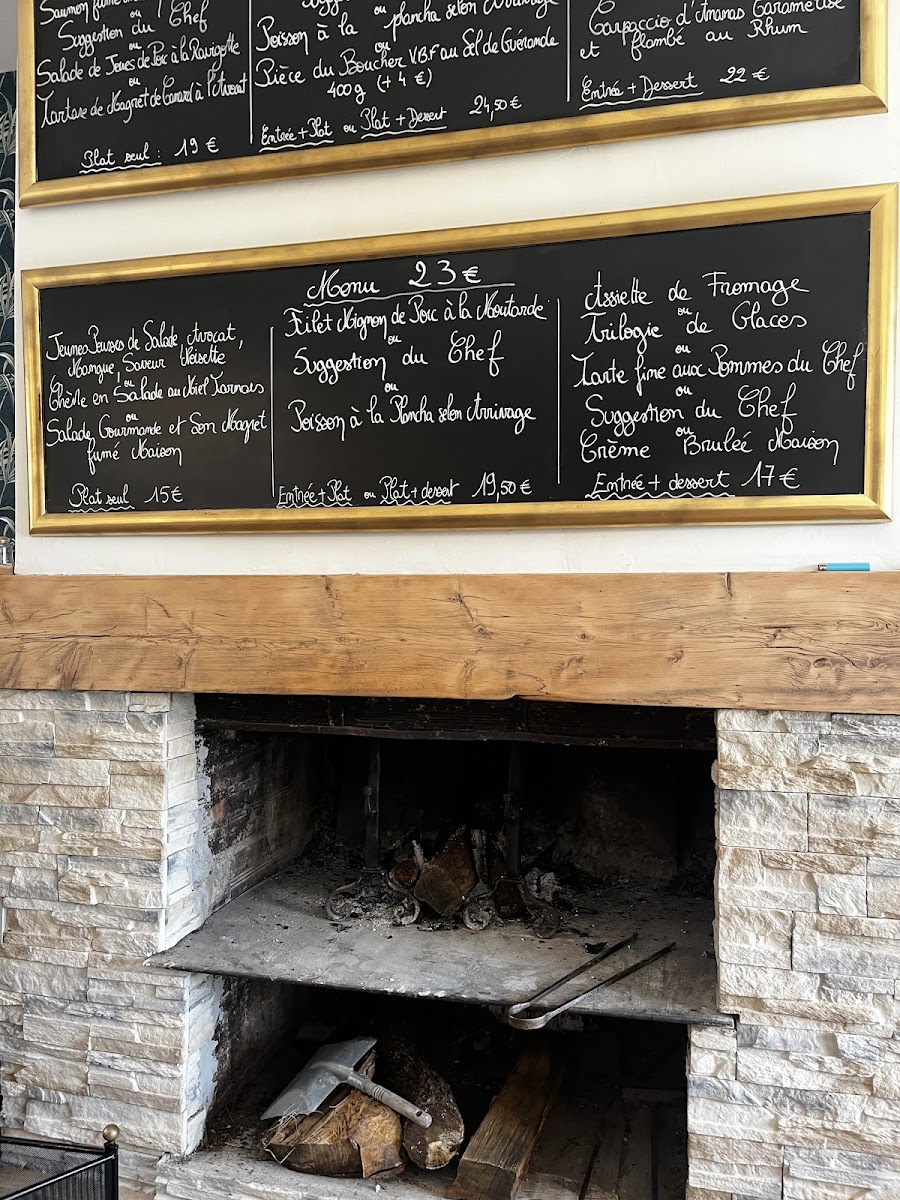 Saumon fumé
ou
Suggestion du Chef
ou
Salade de Joues de Porc à la Ravigotte
ou
Tartare de Magret de Canard à l'Avocat
Plat seul : 19 €
Suggestion
ou
Poisson à la plancha selon Arrivage
ou
Pièce du Boucher V.B.F au Sel de Guérande
400g (+ 4 €)
Entrée + Plat ou Plat + Dessert 24,50 €
Carpaccio d'Ananas Caramélisé
et flambé au Rhum
Entrée + Dessert 22 €
Menu 23 €
Jeunes Pousses de Salade, Avocat,
Mangue, Saveur Noisette
ou
Chèvre en Salade au Miel Tarnais
ou
Salade Gourmande et Son Magret
fumé Maison
Plat seul 15 €
Filet Mignon de Porc à la Moutarde
ou
Suggestion du Chef
ou
Poisson à la Plancha selon Arrivage
Entrée + Plat ou Plat + dessert 19,50 €
Assiette de Fromage
ou
Trilogie de Glaces
ou
Tarte fine aux Pommes du Chef
ou
Suggestion du Chef
ou
Crème Bruleé Maison
Entrée + dessert 17 €